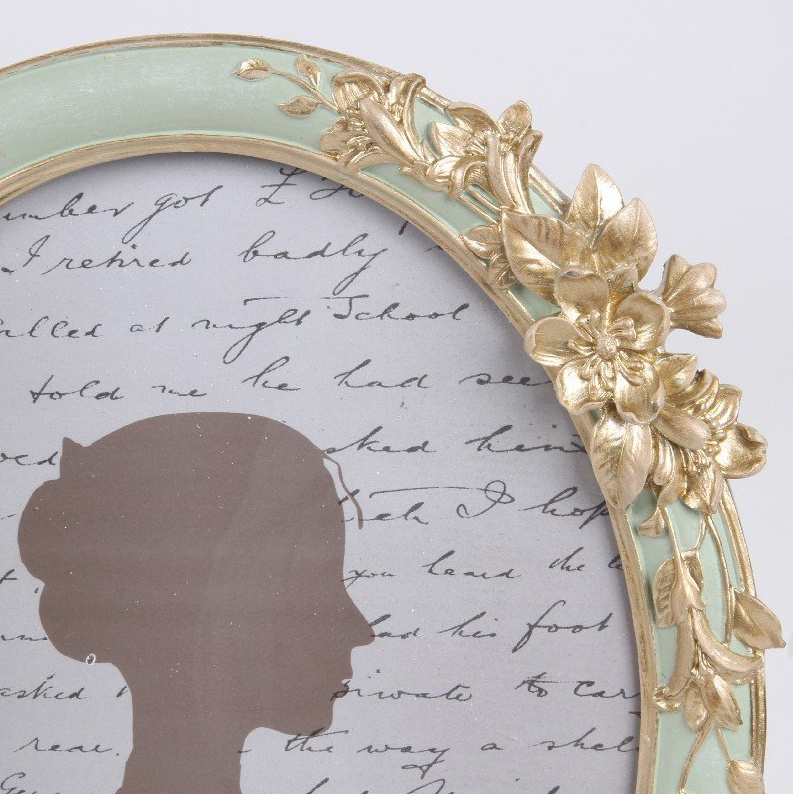 umber got
I retired badly
called at night School
told me he had see
ked him
I hop
you heard the
had his foot
asked private to car
rear. the way a shel